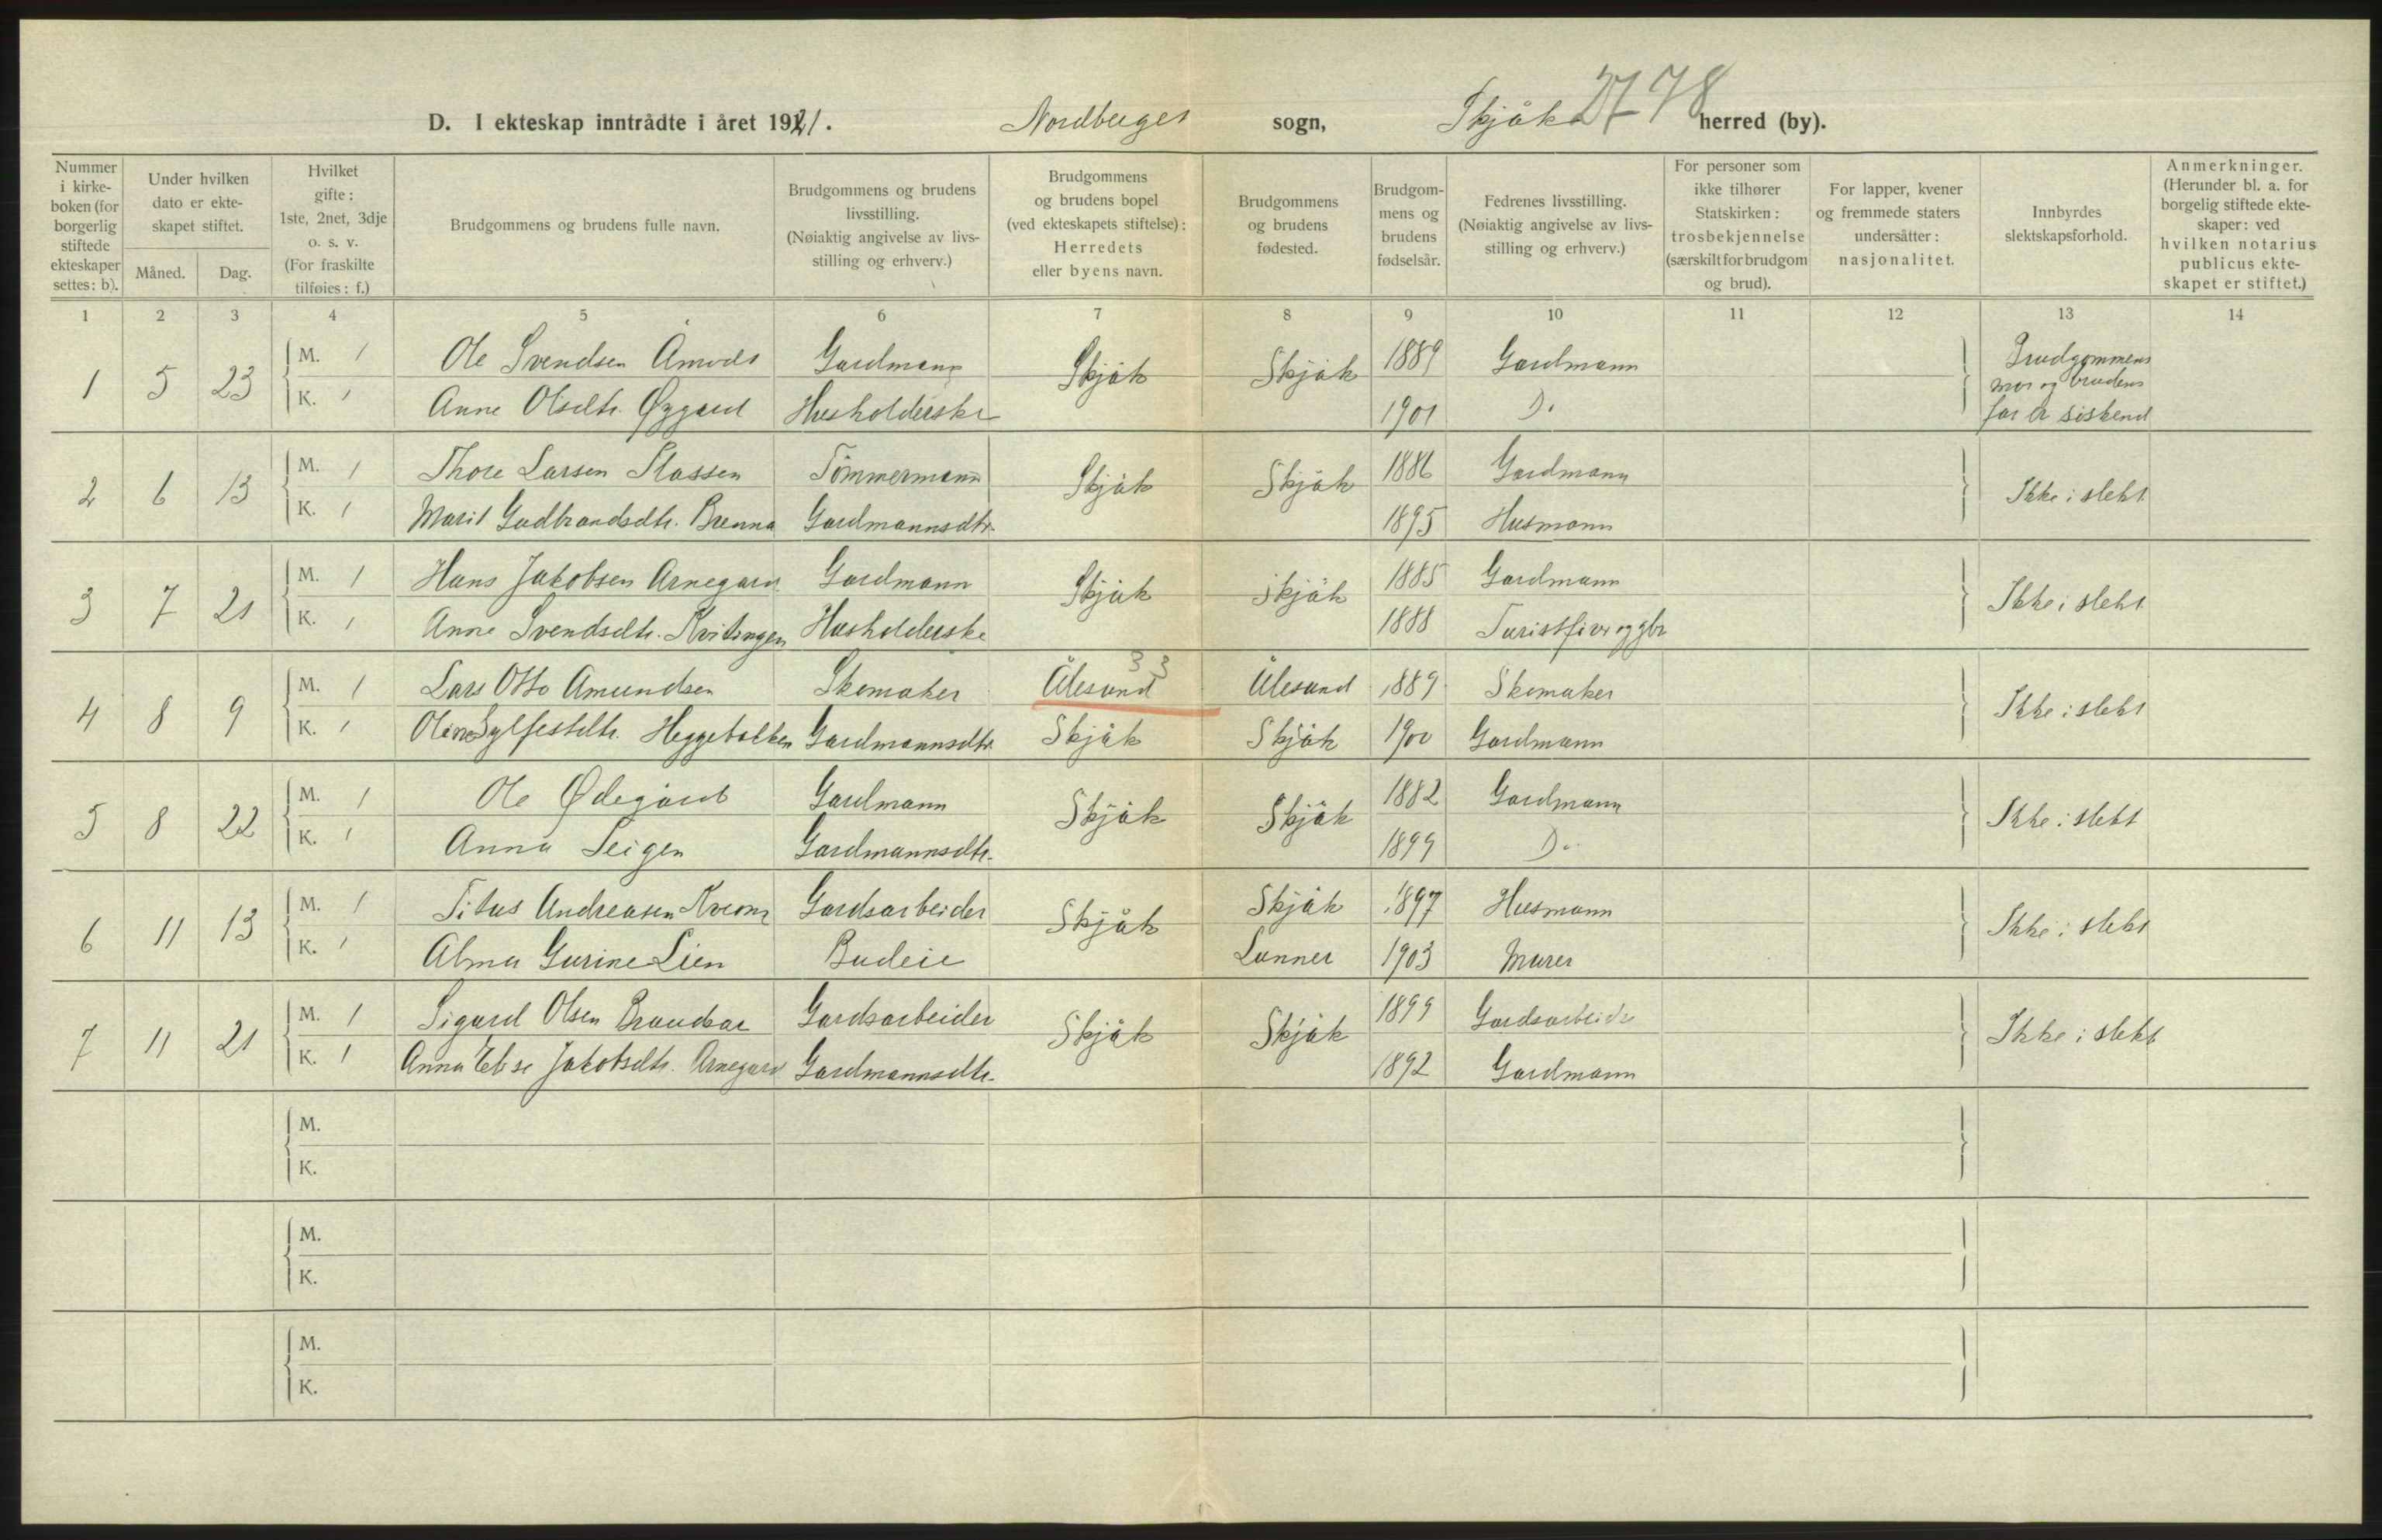 D. I ekteskap inntrådte i året 1921. Nordberget sogn, Skjåk 2778 herred (by).
Nummer i kirkeboken (for borgerlig stiftede ekteskaper settes: b). Under hvilken dato er ekteskapet stiftet. Måned. Dag. Hvilket gifte: 1ste, 2net, 3dje o. s. v. (For fraskilte tilføies: f.) Brudgommens og brudens fulle navn. Brudgommens og brudens livsstilling. (Nøiaktig angivelse av livsstilling og erhverv.) Brudgommens og brudens bopel (ved ekteskapets stiftelse): Herredets eller byens navn. Brudgommens og brudens fødested. Brudgommens og brudens fødselsår. Fedrenes livsstilling. (Nøiaktig angivelse av livsstilling og erhverv.) For personer som ikke tilhører Statskirken: trosbekjennelse (særskilt for brudgom og brud). For lapper, kvener og fremmede staters undersåtter: nasjonalitet. Innbyrdes slektskapsforhold. Anmerkninger. (Herunder bl. a. for borgelig stiftede ekteskaper: ved hvilken notarius publicus ekteskapet er stiftet.)
1 2 3 4 5 6 7 8 9 10 11 12 13 14
1 5 23 M. 1 Ole Svendsen Åmodt Gardmann Skjåk Skjåk 1889 Gardmann Brudgommens mor og brudens far er siskend
K. 1 Anne Olsdtr. Øygard Husholderske 1901 Do
2 6 13 M. 1 Thore Larsen Slassen Tömmermann Skjåk Skjåk 1886 Gardmann Ikke i slekt
K. 1 Marit Gudbrandsdtr. Brenna Gardmannsdtr. 1895 Husmann
3 7 21 M. 1 Hans Jakobsen Arnegard Gardmann Skjåk Skjåk 1885 Gardmann Ikke i slekt
K. 1 Anne Svendsdtr. Kvitingen Husholderske 1888 Turistfivr og gbr
4 8 9 M. 1 Lars Otto Amundsen Skomaker Ålesund 33 Ålesund 1889 Skomaker Ikke i slekt
K. 1 Oline Sylfestdtr. Heggebotten Gardmannsdtr. Skjåk Skjåk 1900 Gardmann
5 8 22 M. 1 Ole Ødegård Gardmann Skjåk Skjåk 1882 Gardmann Ikke i slekt
K. 1 Anna Teigen Gardmannsdtr. 1899 Do
6 11 13 M. 1 Titus Andreasen Kvern Gardsarbeider Skjåk Skjåk 1897 Husmann Ikke i slekt
K. 1 Alma Gurine Lien Budeie Lunner 1903 Murer
7 11 21 M. 1 Sigurd Olsen Brandsar Gardsarbeider Skjåk Skjåk 1899 Gardsarbeider Ikke i slekt
K. 1 Anna Elise Jakobsdtr. Arnegard Gardmannsdtr. 1892 Gardmann
M.
K.
M.
K.
M.
K.